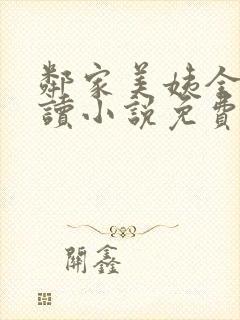 鄰家美姨全
讀小說免費
開鑫